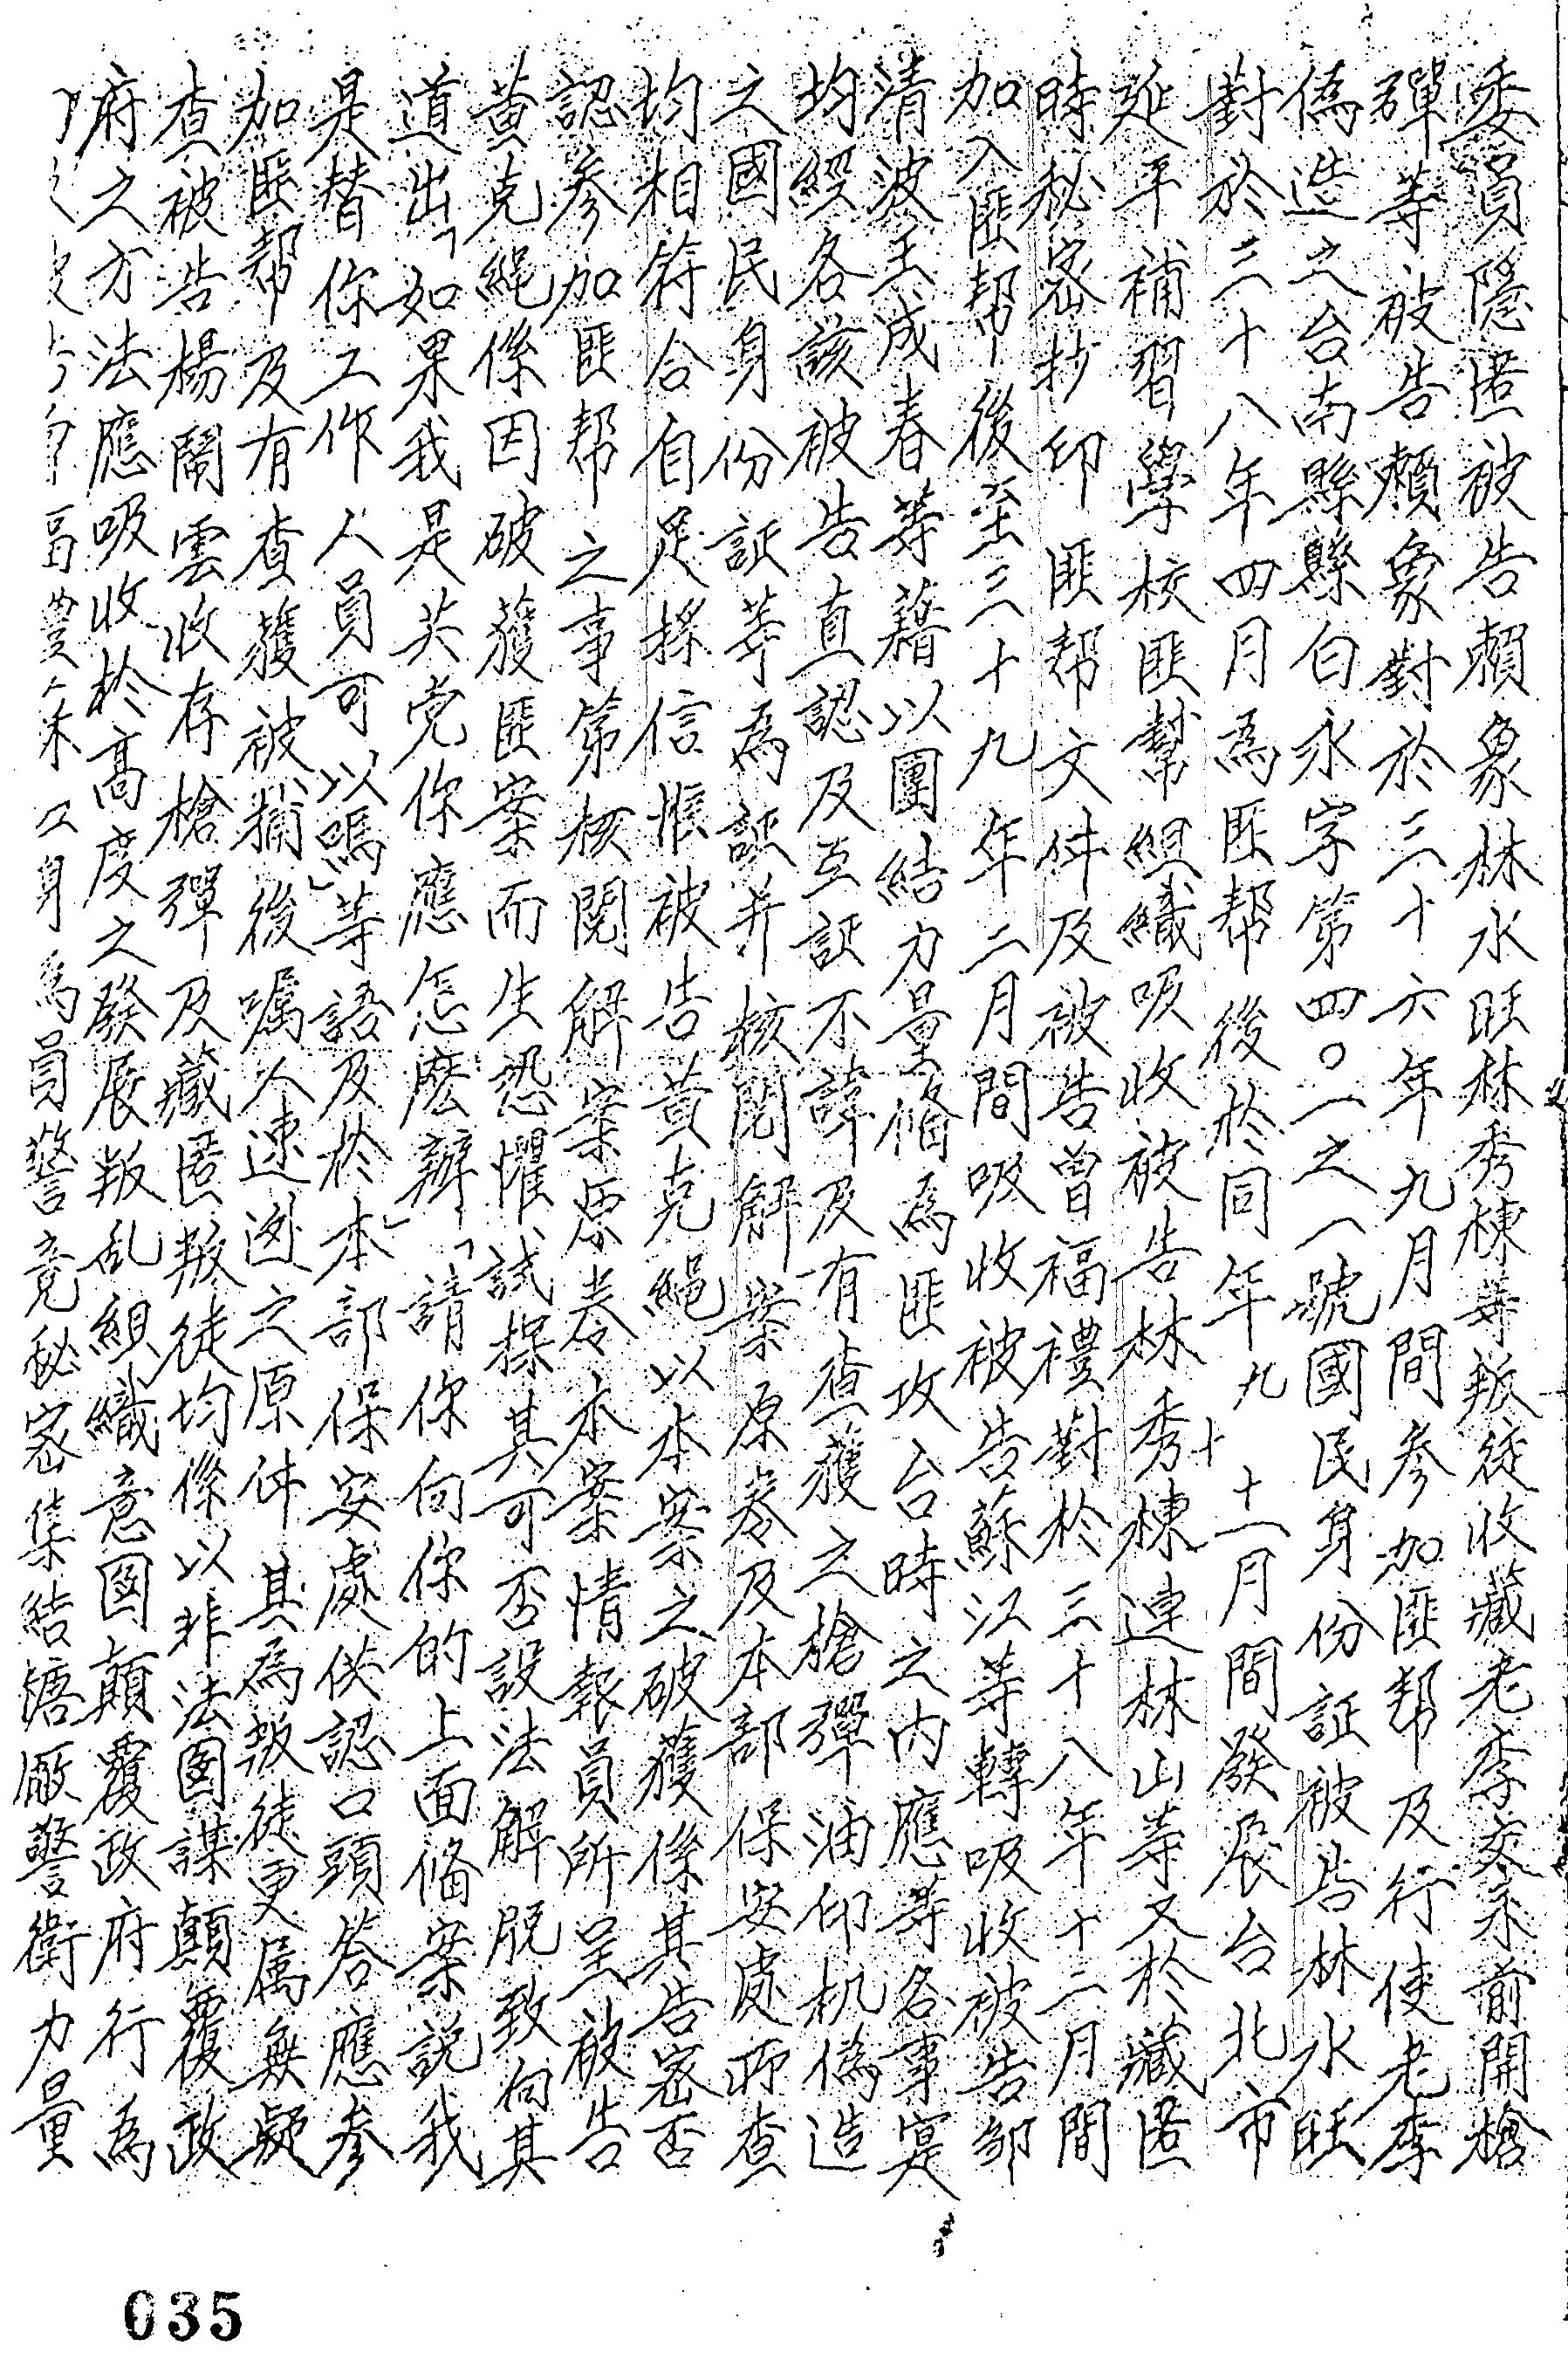 委員隱匿被告賴象林水旺林秀棟等叛徒收藏老李交来前開槍
彈等被告賴象對於三十六年九月間參加匪帮及行使老李
偽造之台南縣縣白永字第四〇一之一號國民身份証被告林水旺
對於三十八年四月為匪帮後於同年九十十一月間發展台北市
延平補習學校匪幫組織吸收被告林秀棟連林山等又於藏匿
時秘密抄印匪帮文件及被告曾福禮對於三十八年十二月間
加入匪帮後至三十九年二月間吸收被告蘇江等轉吸收被告邹
清波王成春等藉以團結力量俻為匪攻台時之内應等各事寔
均經各該被告直認及互証不諱及有查獲之槍彈油印机偽造
之國民身份証等為証并核閱解案原卷及本部保安處所查
均相符合自足採信惟被告黃克繩以本案之破獲係其告密否
認參加匪帮之事第核閱解案原卷本案情報員所呈被告
黃克繩係因破獲匪案而生恐懼試探其可否設法解脫致向其
道出「如果我是共党你應怎麽辦」「請你向你的上面俻案説我
是替你工作人員可以嗎」等語及於本部保安處供認口頭答應參
加匪帮及有查獲被捕後嘱人速逃之原件其為叛徒更属無疑
查被告楊鬧雲收存槍彈及藏匿叛徒均係以非法圖謀顛覆政
府之方法應吸收於高度之發展叛乱組織意图顛覆政府行為
身為員警竟秘密集結塘厰警衛力量
035